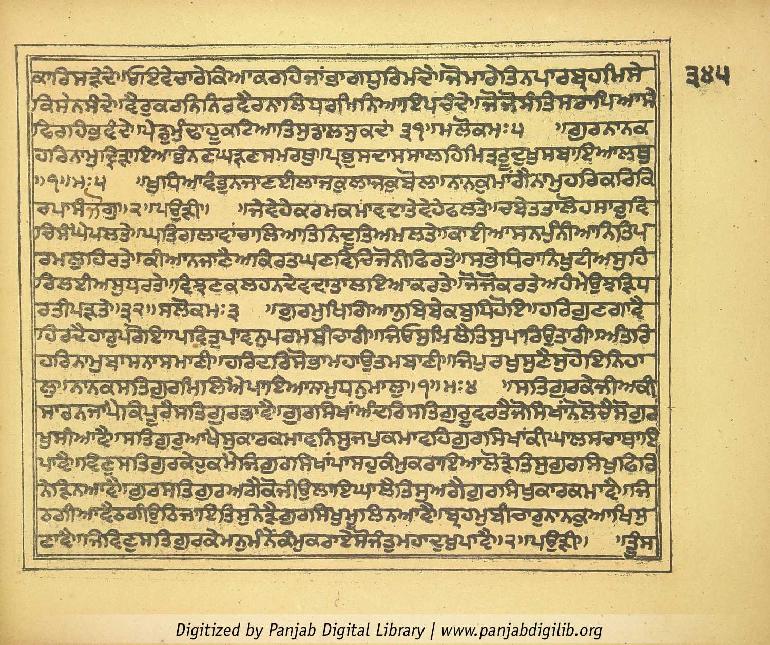 ਕਾਰਿਸੜੇਦੇ॥ਓਇਵੇਚਾਰੇਕਿਆਕਰਹਿਜਾਂਭਾਗਧੁਰਿਮੰਦੇ॥ਜੋਮਾਰੇਤਿਨਪਾਰਬ੍ਰਹਮਿਸੇ
ਕਿਸੇਨਸੰਦੇ॥ਵੈਰੁਕਰਨਿਨਿਰਵੈਰਨਾਲਿਧਰਮਿਨਿਆਇਪਚੰਦੇ॥ਜੋਜੋਸੰਤਿਸਰਾਪਿਆਸੇ
ਫਿਰਹਿਭਵੰਦੇ॥ਪੇਡੁਮੁੰਢਾਹੂਕਟਿਆਤਿਸੁਡਾਲਸੁਕਦੇ ੩੧॥ਸਲੋਕਮਃ੫ ॥ਗੁਰਨਾਨਕ
ਹਰਿਨਾਮੁਦ੍ਰਿੜਾਇਆਭੰਨਣਘੜਣਸਮਰਥੁ॥ਪ੍ਰਭੁਸਦਾਸਮਾਲਹਿਮਿਤ੍ਰਤੂਦੁਖੁਸਬਾਇਆਲਥੁ
॥੧॥ਮਃ੫ ॥ਖੁਧਿਆਵੰਤੁਨਜਾਣਈਲਾਜਕੁਲਾਜਕੁਬੋਲਾ॥ਨਾਨਕੁਮਾਂਗੈਨਾਮੁਹਰਿਕਰਿਕਿ
ਰਪਾਸੰਜੋਗੁ॥੨॥ਪਉੜੀ॥ ॥ਜੇਵੇਹੇਕਰਮਕਮਾਵਦਾਤੇਵੇਹੇਫਲਤੇ॥ਚਬੇਤਤਾਲੋਹਸਾਰੁਵਿ
ਚਿਸੰਘੇਪਲਤੇ॥ਘਤਿਗਲਾਵਾਂਚਾਲਿਆਤਿਨਿਦੂਤਿਅਮਲਤੇ॥ਕਾਈਆਸਨਪੁੰਨੀਆਨਿਤਿਪ
ਰਮਲੁਹਿਰਤੇ॥ਕੀਆਨਜਾਣੈਅਕਿਰਤਘਣਵਿਚਿਜੋਨੀਫਿਰਤੇ॥ਸਭੇਧਿਰਾਨਿਖੁਟੀਅਸੁਹਿ
ਰਿਲਈਅਸੁਧਰਤੇ॥ਵਿਝਣਕਲਹਨਦੇਵਦਾਤਾਲਾਇਆਕਰਤੇ॥ਜੋਜੋਕਰਤੇਅਹੰਮੇਉਝੜਿਧ
ਰਤੀਪੜਤੇ॥੩੨॥ਸਲੋਕਮਃ੩ ॥ਗੁਰਮੁਖਿਗਿਆਨੁਬਿਬੇਕਬੁਧਿਹੋਇ॥ਹਰਿਗੁਣਗਾਵੈ
ਹਿਰਦੈਹਾਰੁਪਰੋਇ॥ਪਵਿਤੁਪਾਵਨੁਪਰਮਬੀਚਾਰੀ॥ਜਿਓਸੁਮਿਲੈਤਿਸੁਪਾਰਿਉਤਾਰੀ॥ਅੰਤਰਿ
ਹਰਿਨਾਮੁਬਾਸਨਾਸਮਾਣੀ॥ਹਰਿਦਰਿਸੋਭਾਮਹਾਉਤਮਬਾਣੀ॥ਜਿਪੁਰਖੁਸੁਣੈਸੁਹੋਇਨਿਹਾ
ਲੁ॥ਨਾਨਕਸਤਿਗੁਰਮਿਲਿਐਪਾਇਆਨਾਮੁਧਨੁਮਾਲੁ॥੧॥ਮਃ੪ ॥ਸਤਿਗੁਰਕੇਜੀਅਕੀ
ਸਾਰਨਜਾਪੈਕਿਪੂਰੈਸਤਿਗੁਰਭਾਵੈ॥ਗੁਰਸਿਖਾਂਅੰਦਰਿਸਤਿਗੁਰੂਵਰਤੈਜੋਸਿਖਾਂਨੋਲੋਚੈਸੋਗੁਰ
ਖੁਸੀਆਵੈ॥ਸਤਿਗੁਰੁਆਖੈਸੁਕਾਰਕਮਾਵਨਿਸੁਜਪੁਕਮਾਵਹਿਗੁਰਸਿਖਾਂਕੀਘਾਲਸਚਾਥਾਇ
ਪਾਵੈ॥ਵਿਣੁਸਤਿਗੁਰਕੇਹੁਕਮੈਜਿਗੁਰਸਿਖਾਂਪਾਸਹੁਕੰਮੁਕਰਾਇਆਲੋੜੇਤਿਸੁਗੁਰਸਿਖੁਫਿਰਿ
ਨੇੜਿਨਆਵੈ॥ਗੁਰਸਤਿਗੁਰਅਗੈਕੋਜੀਉਲਾਇਘਾਲੈਤਿਸੁਅਗੈਗੁਰਸਿਖੁਕਾਰਕਮਾਵੈ॥ਜਿ
ਠਗੀਆਵੈਠਗੀਉਠਿਜਾਇਤਿਸੁਨੇੜੈਗੁਰਸਿਖੁਮੂਲਿਨਆਵੈ॥ਬ੍ਰਹਮੁਬੀਚਾਰੁਨਾਨਕੁਆਖਿਸੁ
ਣਾਵੈ॥ਜਿਵਿਣੁਸਤਿਗੁਰਕੇਮਨੁਮੰਨੇਕੰਮੁਕਰਾਏਸੋਜੰਤੁਮਹਾਦੁਖੁਪਾਵੈ॥੨॥ਪਉੜੀ॥ ॥ਤੂੰਸ
੩੪੫
Digitized by Panjab Digital Library | www.panjabdigilib.org